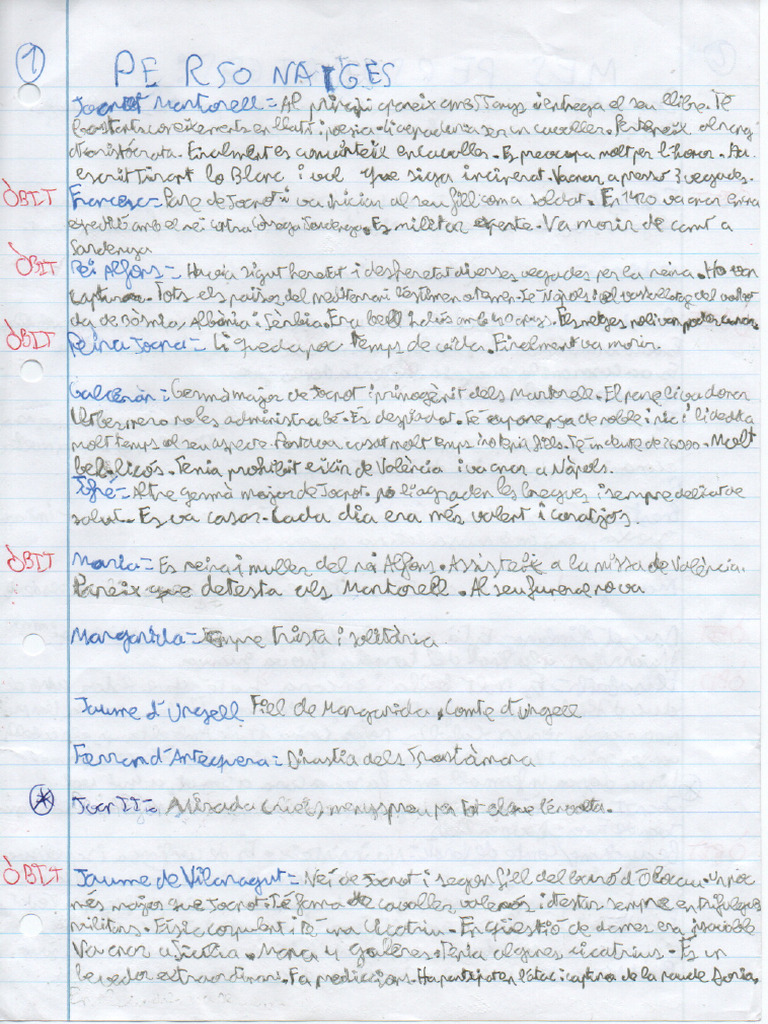 1 PERSONATGES
Joanot Martorell = Al principi apareix amb i entrega el seu llibre. Té
bastants coneixements en llatí i poesia. Li agradaria ser un cavaller. Pertaneix al rang
d'aristòcrata. Finalment es converteix en cavaller. Es preocupa molt per l'honor. Ha
escrit Tirant lo Blanc i vol que siga incinerat. Va anar a presso 3 vegades.
ÒBIT Francesc = Pare de Joanot i va iniciar al seu fill com a soldat. En 1420 va anar en una
expedició amb el rei contra Còrsega Sardenya. Es militar experte. Va morir de camí a
Sardenya
ÒBIT Rei Alfons = Havia sigut heretat i desheretat diverses vegades per la reina. Ho van
capturar. Tots els països del mediterrani l'estimen o temen. Té Nàpols i el vassallatge del
de Bòsnia, Albània i Sèrbia. Era bell inclús amb 60 anys. Els metges no li van poder curar.
ÒBIT Reina Joana = Li queda poc temps de vida. Finalment va morir.
Galceràn = Germà major de Joanot i primogènit dels Martorell. El pare li va donar
llibres pero no les administra bé. És despiadat. Té aparença de noble i ric i li dedica
molt temps al seu aspecte. Portava casat molt temps i no tenia fills. Té un deute de 26000. Molt
bel·licós. Tenia prohibit eixir de València i va anar a Nàpols.
Jofré = Altre germà major de Joanot. No li agraden les bregues i sempre delicat de
salut. Es va casar. Cada dia era més valent i coratjós.
ÒBIT Maria = Es reina i muller del rei Alfons. Assisteix a la missa de València.
Pareix que detesta als Martorell. Al seu funeral no va
Margarida = Sempre trista i solitària
Jaume d'Urgell Fill de Margarida, Comte d'urgell
Ferran d'Antequera = Dinastia dels Trastàmara
* Joan II = Mirada menyspreu per tot el que l'envolta.
ÒBIT Jaume de Vilaragut = Nét de Joanot i segon fill del baró d'Olocau. Un poc
més major que Joanot. Té fama de cavaller valerós i destar sempre en
militars. Físic corpulent i té una cicatriu. En qüestió de dames era
Va anar a Sicília. Mana 4 galeres. Tenia algunes cicatrius. És un
bevedor extraordinari. Fa prediccions. Ha participat en l'atac i captura de la nau de Soria.